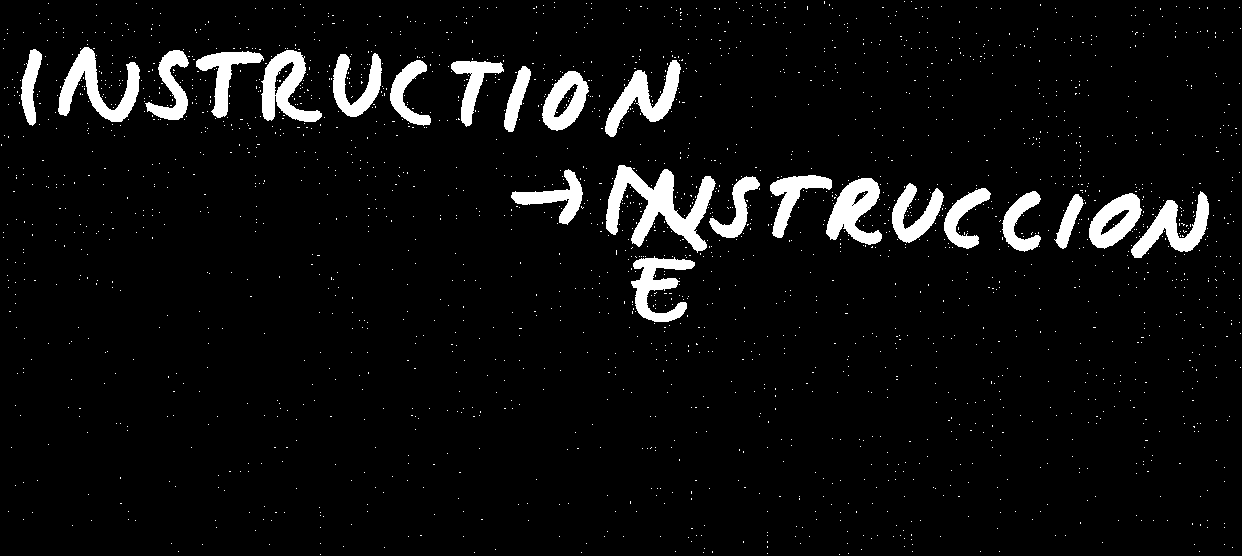 INSTRUCTION
→ INSTRUCCION
E